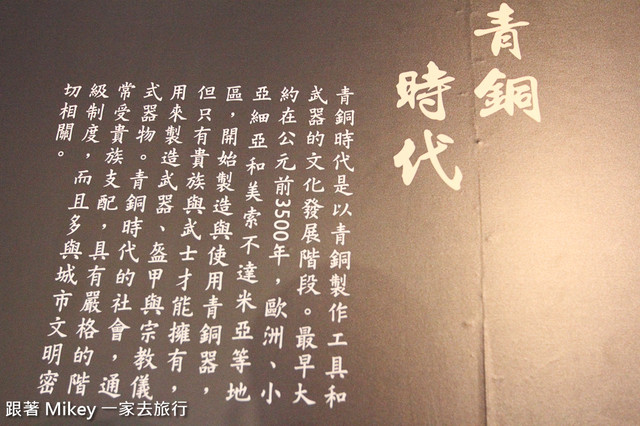 青銅
時代
青銅時代是以青銅製作工具和
武器的文化發展階段。最早大
約在公元前3500年，歐洲、小
亞細亞和美索不達米亞等地
區，開始製造與使用青銅器，
但只有貴族與武士才能擁有，
用來製造武器、盔甲與宗教儀
式器物。青銅時代的社會，通
常受貴族支配，具有嚴格的階
級制度，而且多與城市文明密
切相關。
跟著 Mikey 一家去旅行